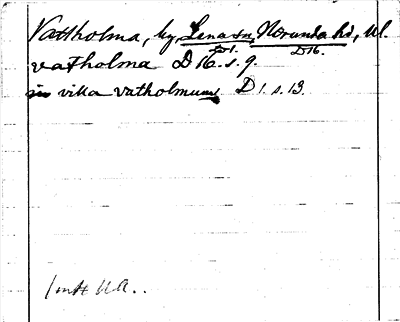 Vattholma, by, Lena sn, Norunda hd, Upl.
D1. D16.
vatholma D 16. s. 9.
in villa vatholmum D 1. s. 13.